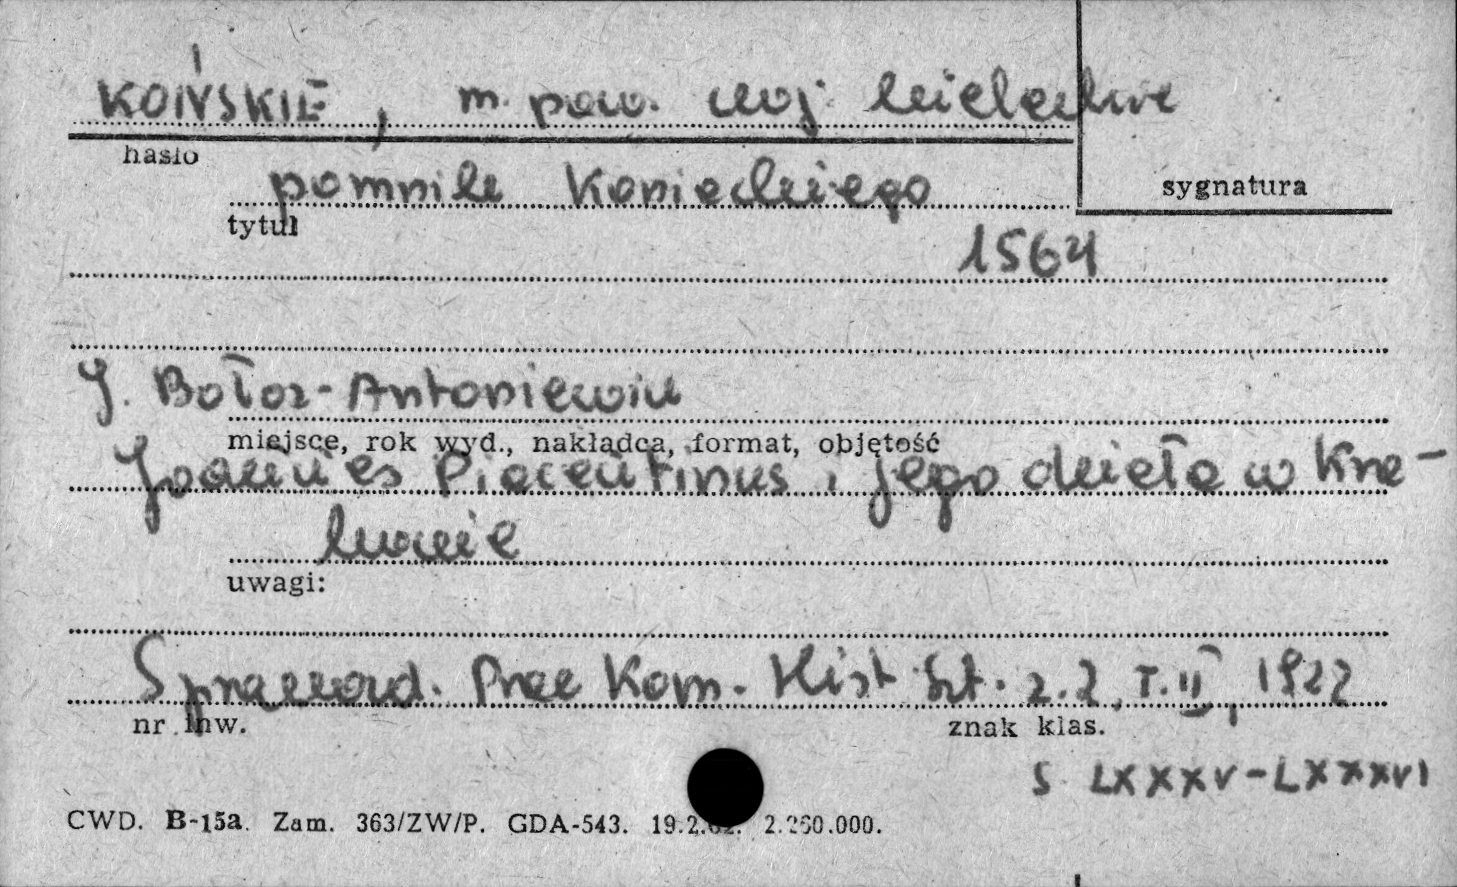 KOŃSKIE, m. pow. woj. kieleckie
hasło
pomnik Konieckiego
sygnatura
tytuł
1564
J. Bołoz-Antoniewicz
miejsce, rok wyd., nakładca, format, objętość
Joannes Piacentinus i jego dzieła w Kra-
kowie
uwagi:
Sprawozd. Prac Kom. Hist Szt. z. 2, T. II, 1922
nr inw.
znak klas.
S LXXXV-LXXXVI
CWD. B-15a. Zam. 363/ZW/P. GDA-543. 19.2.62. 2.260.000.